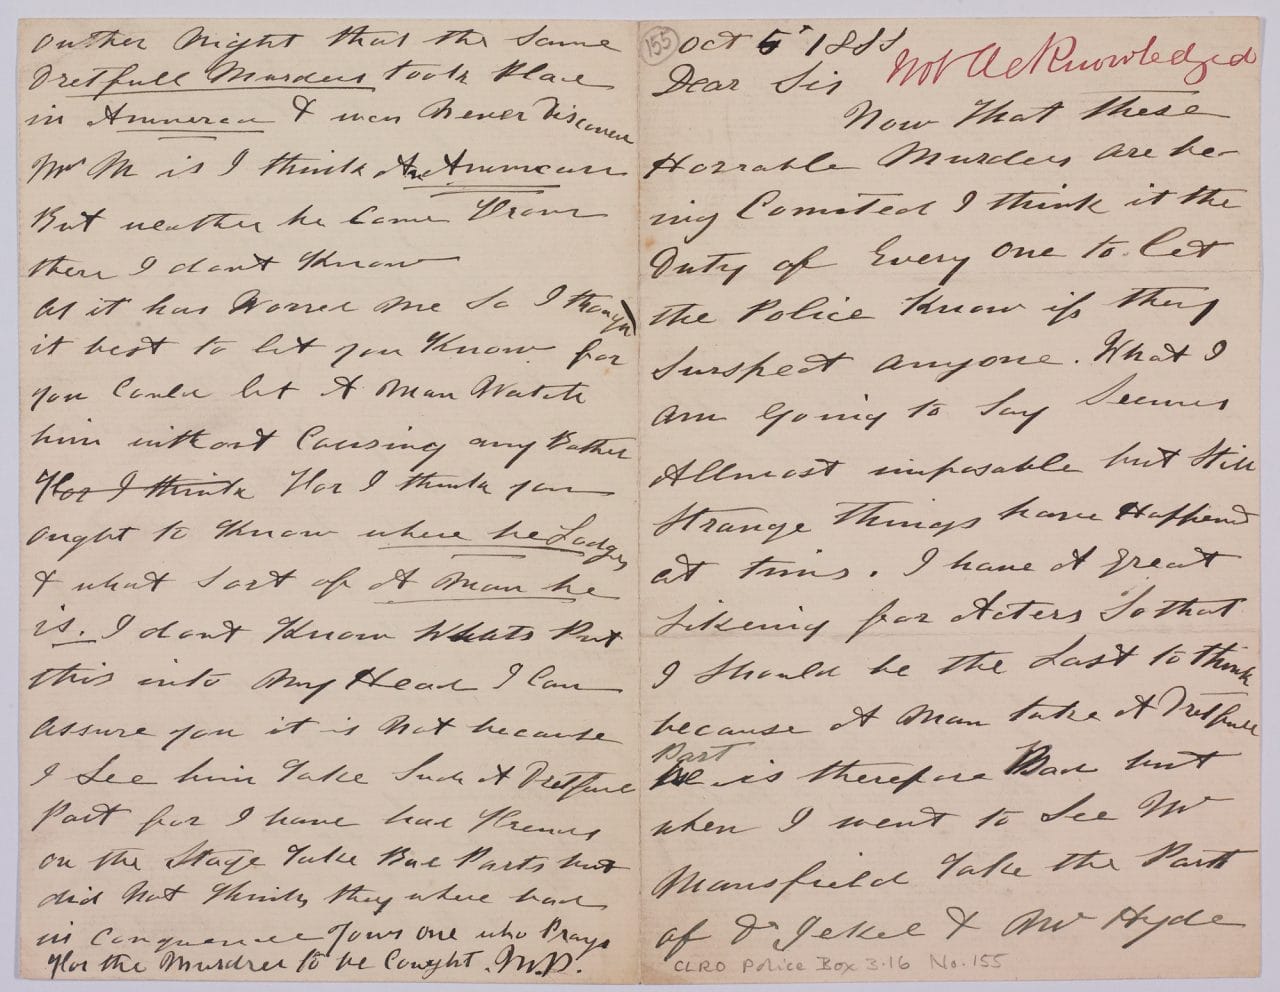 155
Oct 5 1888
Not Acknowledged
Dear Sir
Now that these
Horrable Murders are be-
ing Comsted I think it the
Duty of Every One to let
the Police Know if they
Surspect anyone. What I
am going to Say Seemes
Allmost imposable but Still
Strange things have Happend
at tims. I have A great
Likeing for Acters So that
I Should be the Last to think
because A man take A Dretfull
Part
He is therefore Bad but
when I went to See Mr
Mansfield Take the Part
of Dr Jekel & Mr Hyde
CLRO Police Box 3.16 No. 155
outher Night that the Same
Dretfull Murders took Place
in Amnerca & was Never Discoverd
Mr M is I think An Ammecan
But weather he Came From
there I dont Know
as it has Worred me So I thought
it best to let you Know for
you Could let A Man Watch
him without Causing any Bother
For I think For I think you
ought to Know where he Lodges
& what Sort of A Man he
is. I dont Know Whats Put
this into My Head I Can
assure you it is Not because
I See him Take Such A Dretfull
Part for I have had Frends
on the Stage Take Bad Parts but
did Not think they where bad
in Conquence Yours one who Prays
For the Murdrer to be Caught. M.P.